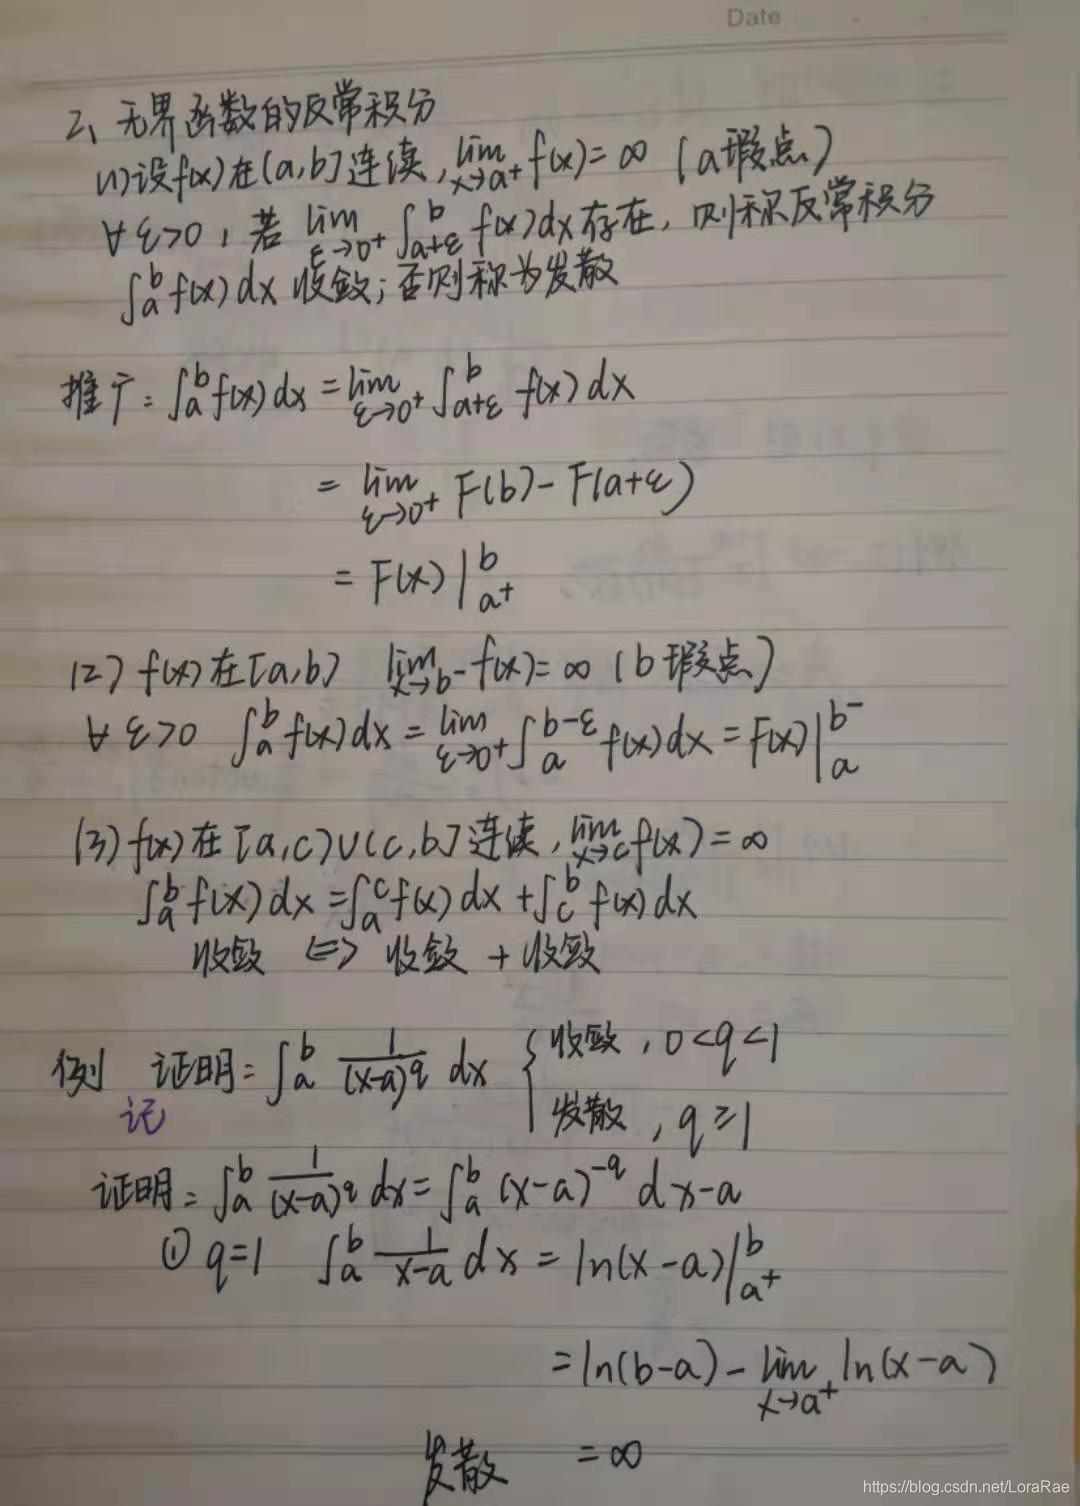 Date
二、无界函数的反常积分
(1)设f(x)在(a,b]连续, lim_{x→a⁺} f(x)=∞ (a瑕点)
∀ε>0, 若 lim_{ε→0⁺} ∫_{a+ε}^{b} f(x)dx存在, 则称反常积分
∫_a^b f(x)dx 收敛; 否则称为发散
推广: ∫_a^b f(x)dx = lim_{ε→0⁺} ∫_{a+ε}^{b} f(x)dx
= lim_{ε→0⁺} F(b)-F(a+ε)
= F(x)|_{a⁺}^{b}
(2) f(x)在[a,b) lim_{x→b⁻} f(x)=∞ (b瑕点)
∀ε>0 ∫_a^b f(x)dx = lim_{ε→0⁺} ∫_a^{b-ε} f(x)dx = F(x)|_a^{b⁻}
(3) f(x)在[a,c)∪(c,b]连续, lim_{x→c} f(x)=∞
∫_a^b f(x)dx = ∫_a^c f(x)dx + ∫_c^b f(x)dx
收敛 ⇔ 收敛 + 收敛
例 证明: ∫_a^b 1/(x-a)^q dx { 收敛, 0<q<1
发散, q≥1
记
证明: ∫_a^b 1/(x-a)^q dx = ∫_a^b (x-a)^{-q} d x-a
① q=1 ∫_a^b 1/(x-a) dx = ln(x-a)|_{a⁺}^{b}
= ln(b-a) - lim_{x→a⁺} ln(x-a)
发散 = ∞
https://blog.csdn.net/LoraRae